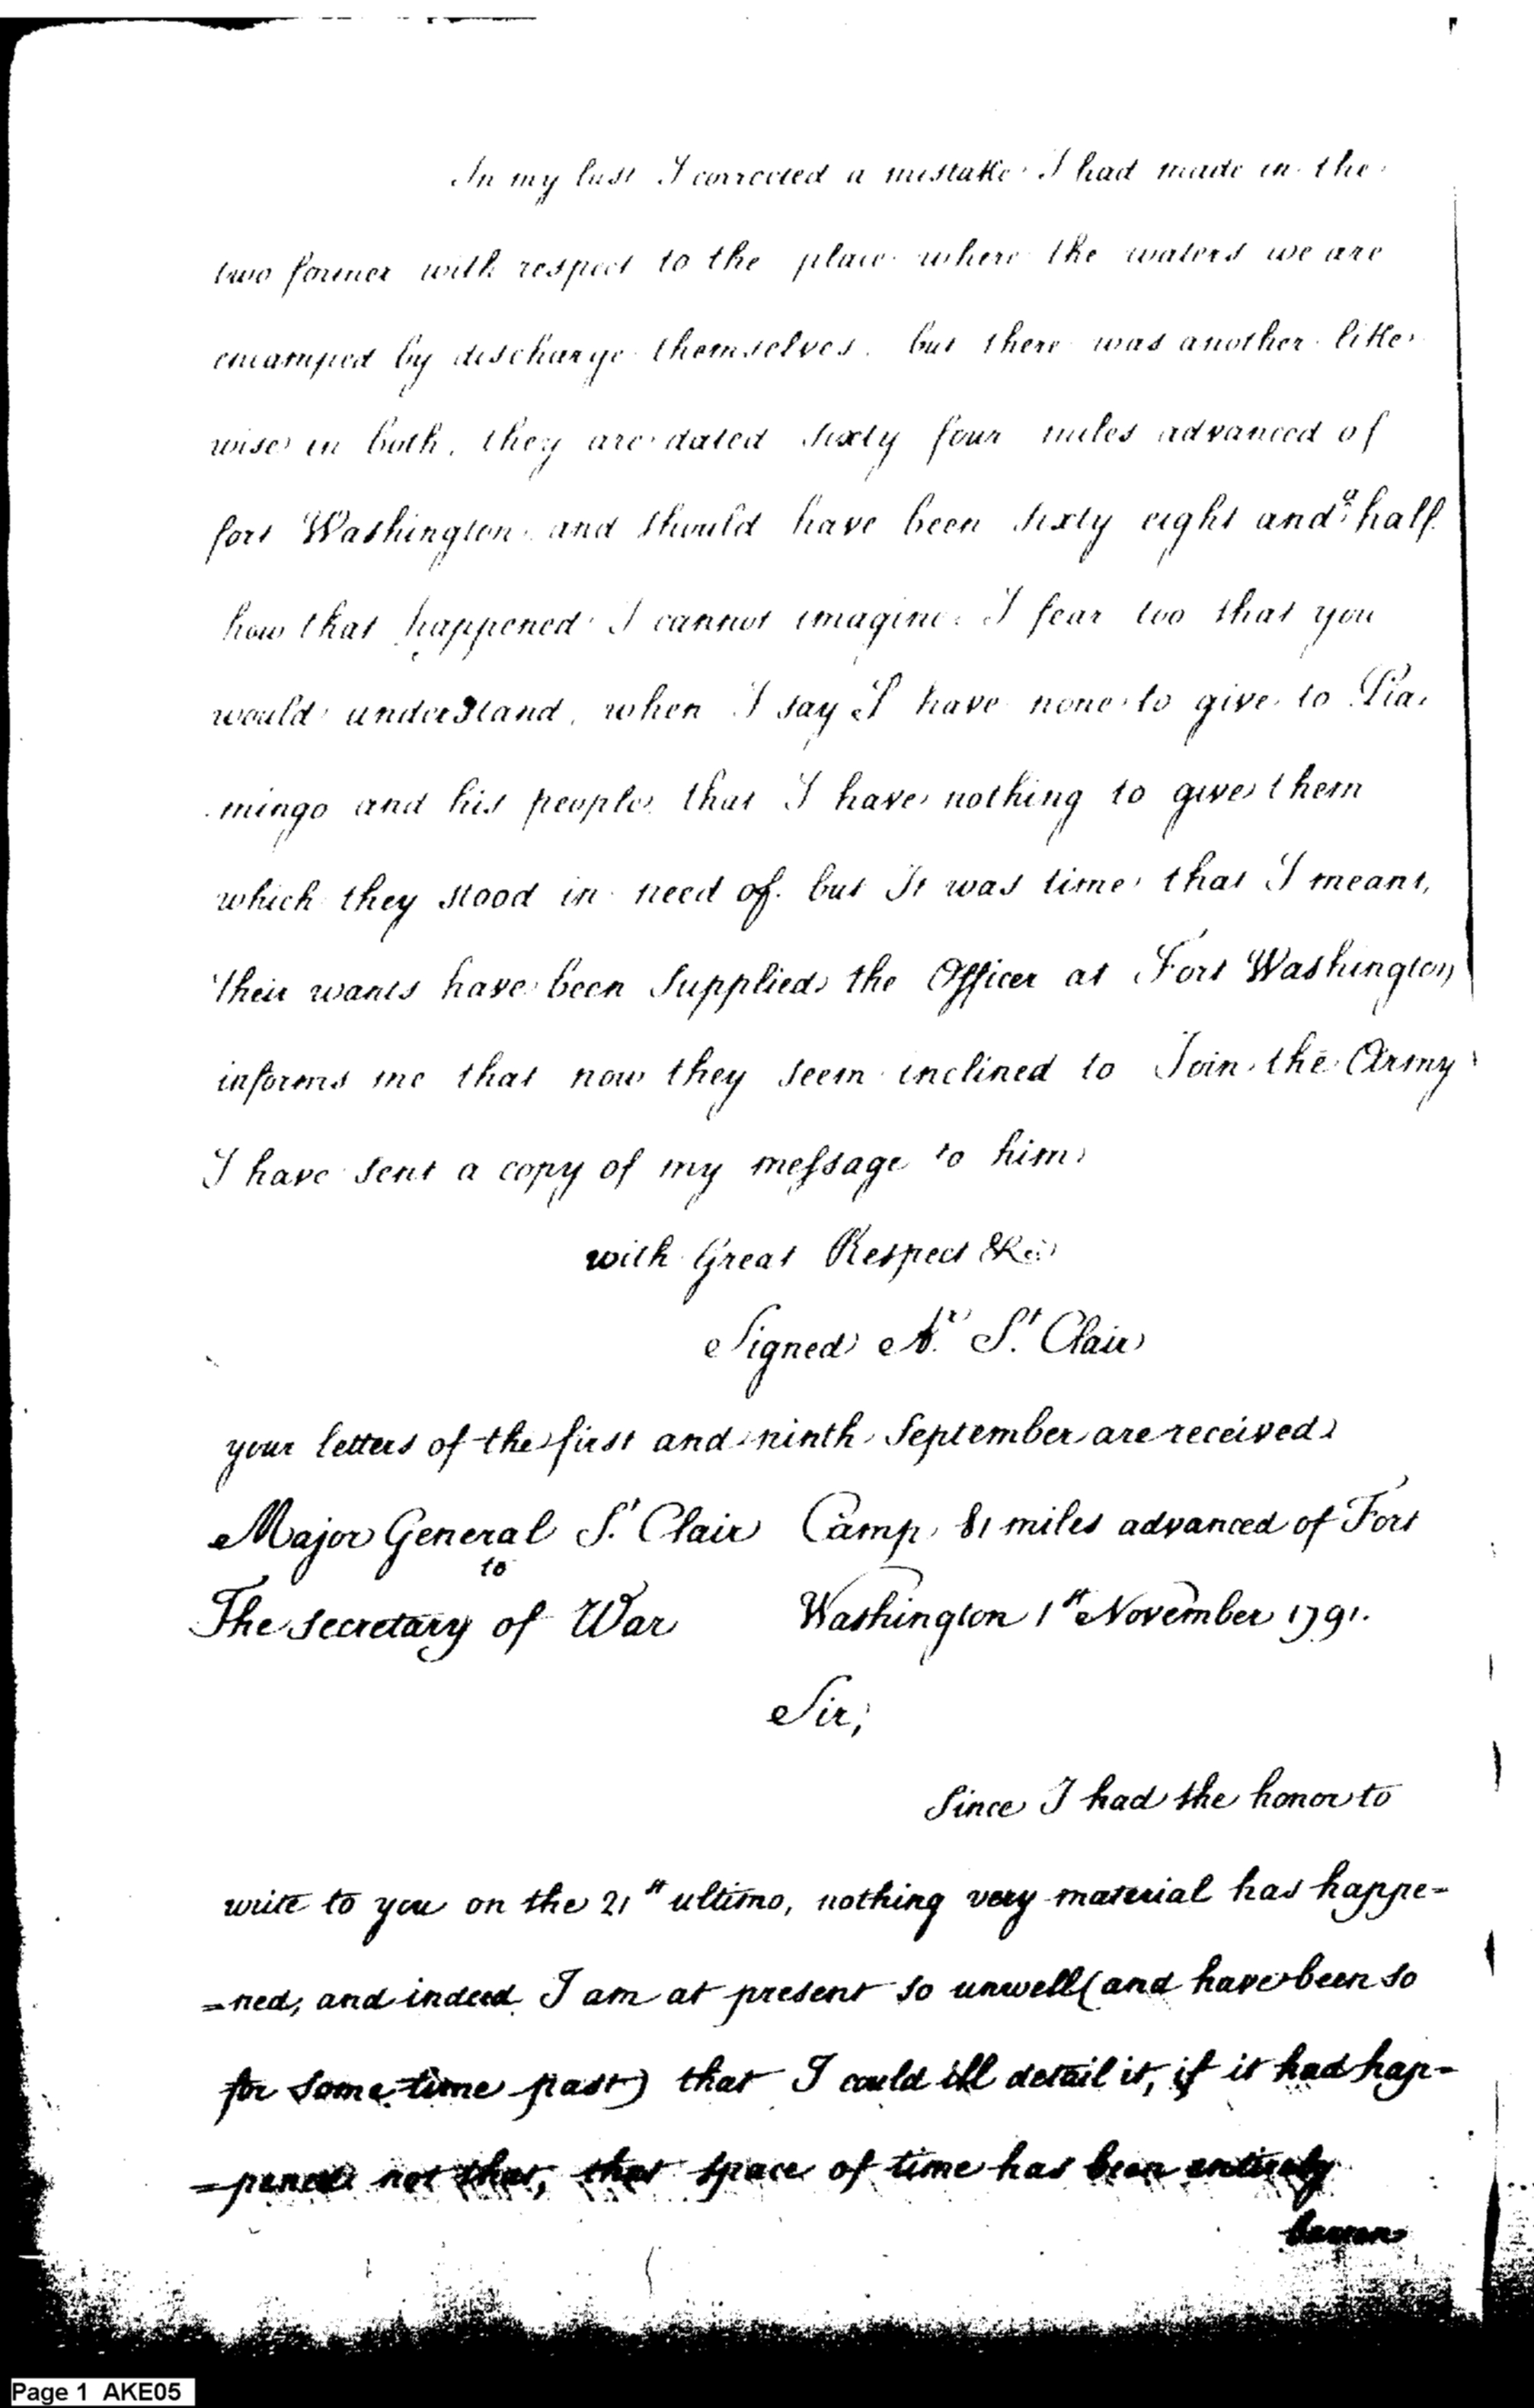 In my last I corrected a mistake I had made in the
two former with respect to the place where the waters we are
encamped by discharge themselves. but there was another like
wise in both, they are dated sixty four miles advanced of
fort Washington and should have been sixty eight and a half.
how that happened I cannot imagine. I fear too that you
would understand, when I say I have none to give to Pia-
mingo and his people, that I have nothing to give them
which they stood in need of. but It was time that I meant,
their wants have been Supplied, the Officer at Fort Washington
informs me that now they seem inclined to Join the Army
I have sent a copy of my meſsage to him.
with Great Respect &c
Signed Ar. St. Clair
your letters of the first and ninth September are received
Major General St. Clair Camp 81 miles advanced of Fort
to
The Secretary of War Washington 1st November 1791.
Sir,
Since I had the honor to
write to you on the 21st ultimo, nothing very material has happe=
=ned, and indeed I am at present so unwell (and have been so
for some time past) that I could ill detail it, if it had hap=
=pened not that, that space of time has been entirely
barren
Page 1 AKE05